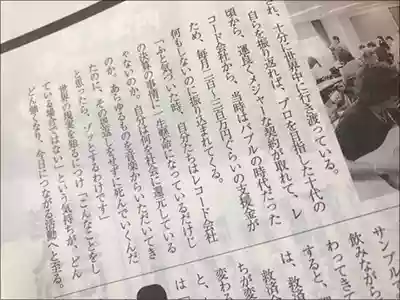 され、十分に世界中に行き渡っている。
自らを振り返れば、プロを目指した十代の
頃から、運良くメジャーな契約が取れて、レ
コード会社から、当時はバブルの時代だった
ため、毎月二百~三百万円ぐらいの支援金が
何もしないのに振り込まれてくる。
「ふと気づいた時、自分たちはレコード会社
の決算の事情に一生懸命になっているだけじ
ゃないのか、自分は何を社会に還元している
のか。あらゆるものを音楽からいただいてき
たのに、その恩返しもせずに死んでいくんだ
と思ったら、ゾッとするわけです」
世界の現実を知るにつけ「こんなことをし
ている場合ではない」という気持ちが、どん
どん強くなり、今日につながる活動へと至る。
サンプル
飲みながら
わってき
すると、
は、救済
救済
ちが変
変わる
と、
は「